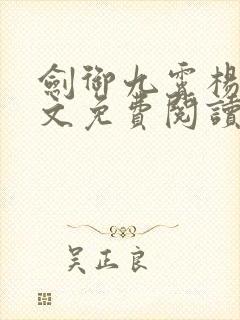 劍御九霄楊
文免費閱讀
吴正良